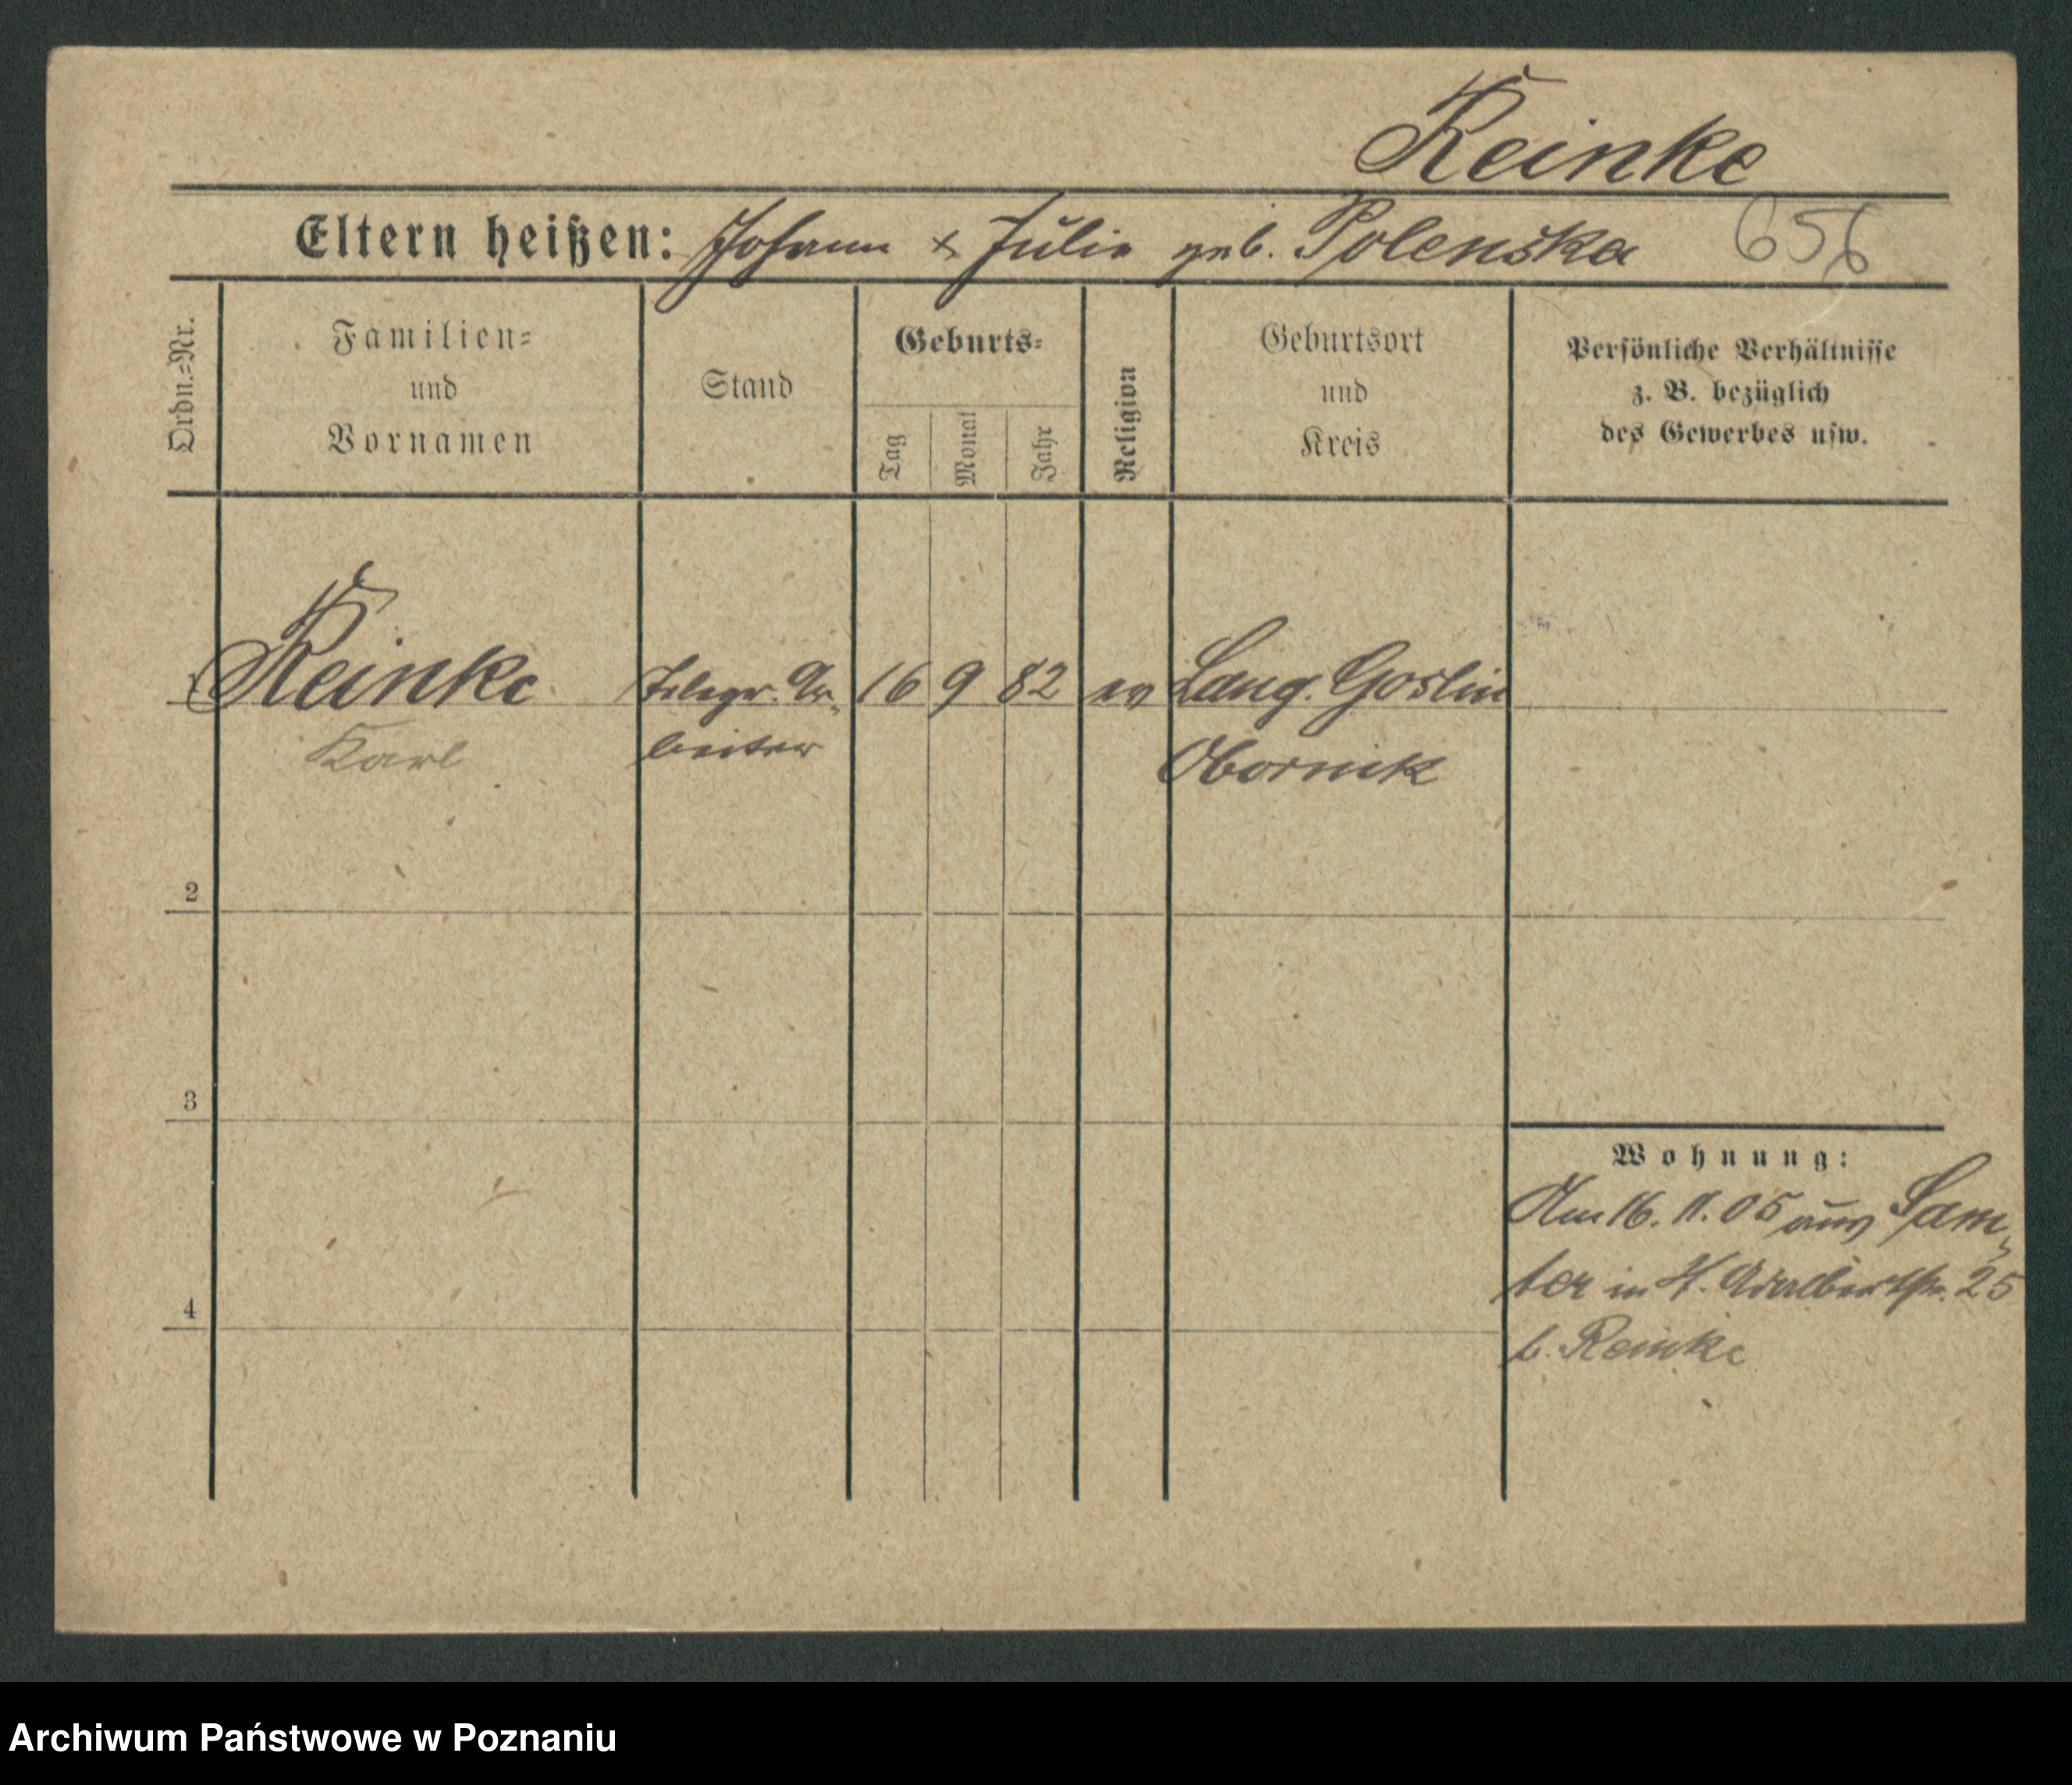 Reinke
Eltern heißen: Johann & Julie geb. Polenska 656
Ordn.=Nr.
Familien=
und
Vornamen
Stand
Geburts=
Tag
Monat
Jahr
Religion
Geburtsort
und
Kreis
Persönliche Verhältnisse
z. B. bezüglich
des Gewerbes usw.
1 Reinke Telegr. Ar- 16 9 82 ev Lang. Goslin
Karl beiter Obornik
2
3
4
Wohnung:
Am 16. 11. 05 aus Sam-
ter in H. Adalbertstr. 25
b. Reinke
Archiwum Państwowe w Poznaniu